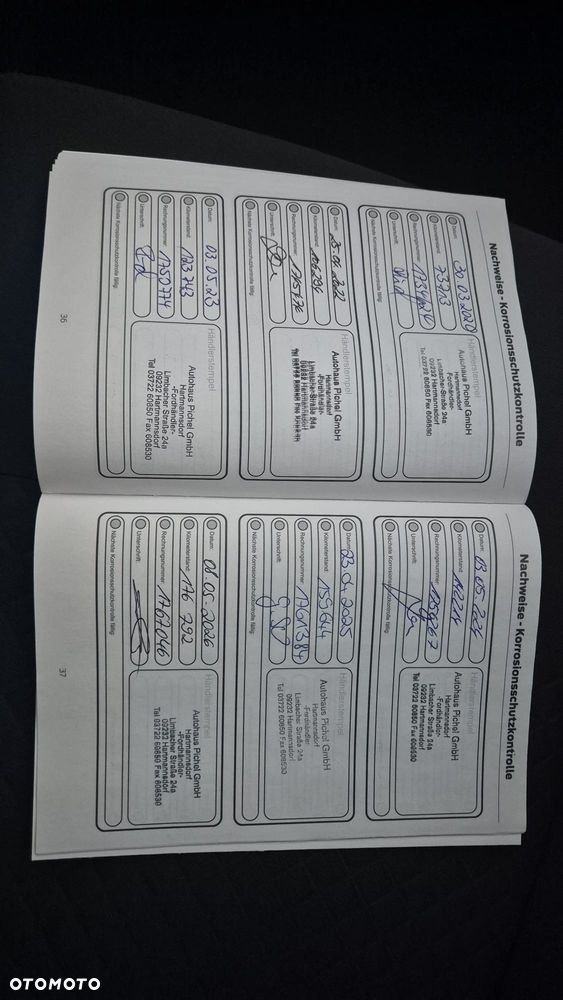 Nachweise - Korrosionsschutzkontrolle
Datum: 30.03.2020
Kilometerstand:
Rechnungsnummer:
Unterschrift:
Nächste Korrosionsschutzkontrolle fällig:
Händlerstempel
Autohaus Pichel GmbH
Hartmannsdorf
-Fordhändler-
Limbacher Straße 24a
09232 Hartmannsdorf
Tel 03722 60850 Fax 608530
Datum:
Kilometerstand:
Rechnungsnummer:
Unterschrift:
Nächste Korrosionsschutzkontrolle fällig:
Händlerstempel
Autohaus Pichel GmbH
Hartmannsdorf
-Fordhändler-
Limbacher Straße 24a
09232 Hartmannsdorf
Datum: 03.05.23
Kilometerstand: 123 743
Rechnungsnummer: 1750774
Unterschrift:
Nächste Korrosionsschutzkontrolle fällig:
Händlerstempel
Autohaus Pichel GmbH
Hartmannsdorf
-Fordhändler-
Limbacher Straße 24a
09232 Hartmannsdorf
Tel 03722 60850 Fax 608530
36
Nachweise - Korrosionsschutzkontrolle
Datum:
Kilometerstand:
Rechnungsnummer:
Unterschrift:
Nächste Korrosionsschutzkontrolle fällig:
Händlerstempel
Autohaus Pichel GmbH
Hartmannsdorf
-Fordhändler-
Limbacher Straße 24a
09232 Hartmannsdorf
Tel 03722 60850 Fax 608530
Datum: 23.04.2025
Kilometerstand: 159644
Rechnungsnummer: 1761384
Unterschrift:
Nächste Korrosionsschutzkontrolle fällig:
Händlerstempel
Autohaus Pichel GmbH
Hartmannsdorf
-Fordhändler-
Limbacher Straße 24a
09232 Hartmannsdorf
Tel 03722 60850 Fax 608530
Datum: 04.05.2026
Kilometerstand: 176 792
Rechnungsnummer: 1767046
Unterschrift:
Nächste Korrosionsschutzkontrolle fällig:
Händlerstempel
Autohaus Pichel GmbH
Hartmannsdorf
-Fordhändler-
Limbacher Straße 24a
09232 Hartmannsdorf
Tel 03722 60850 Fax 608530
37
OTOMOTO